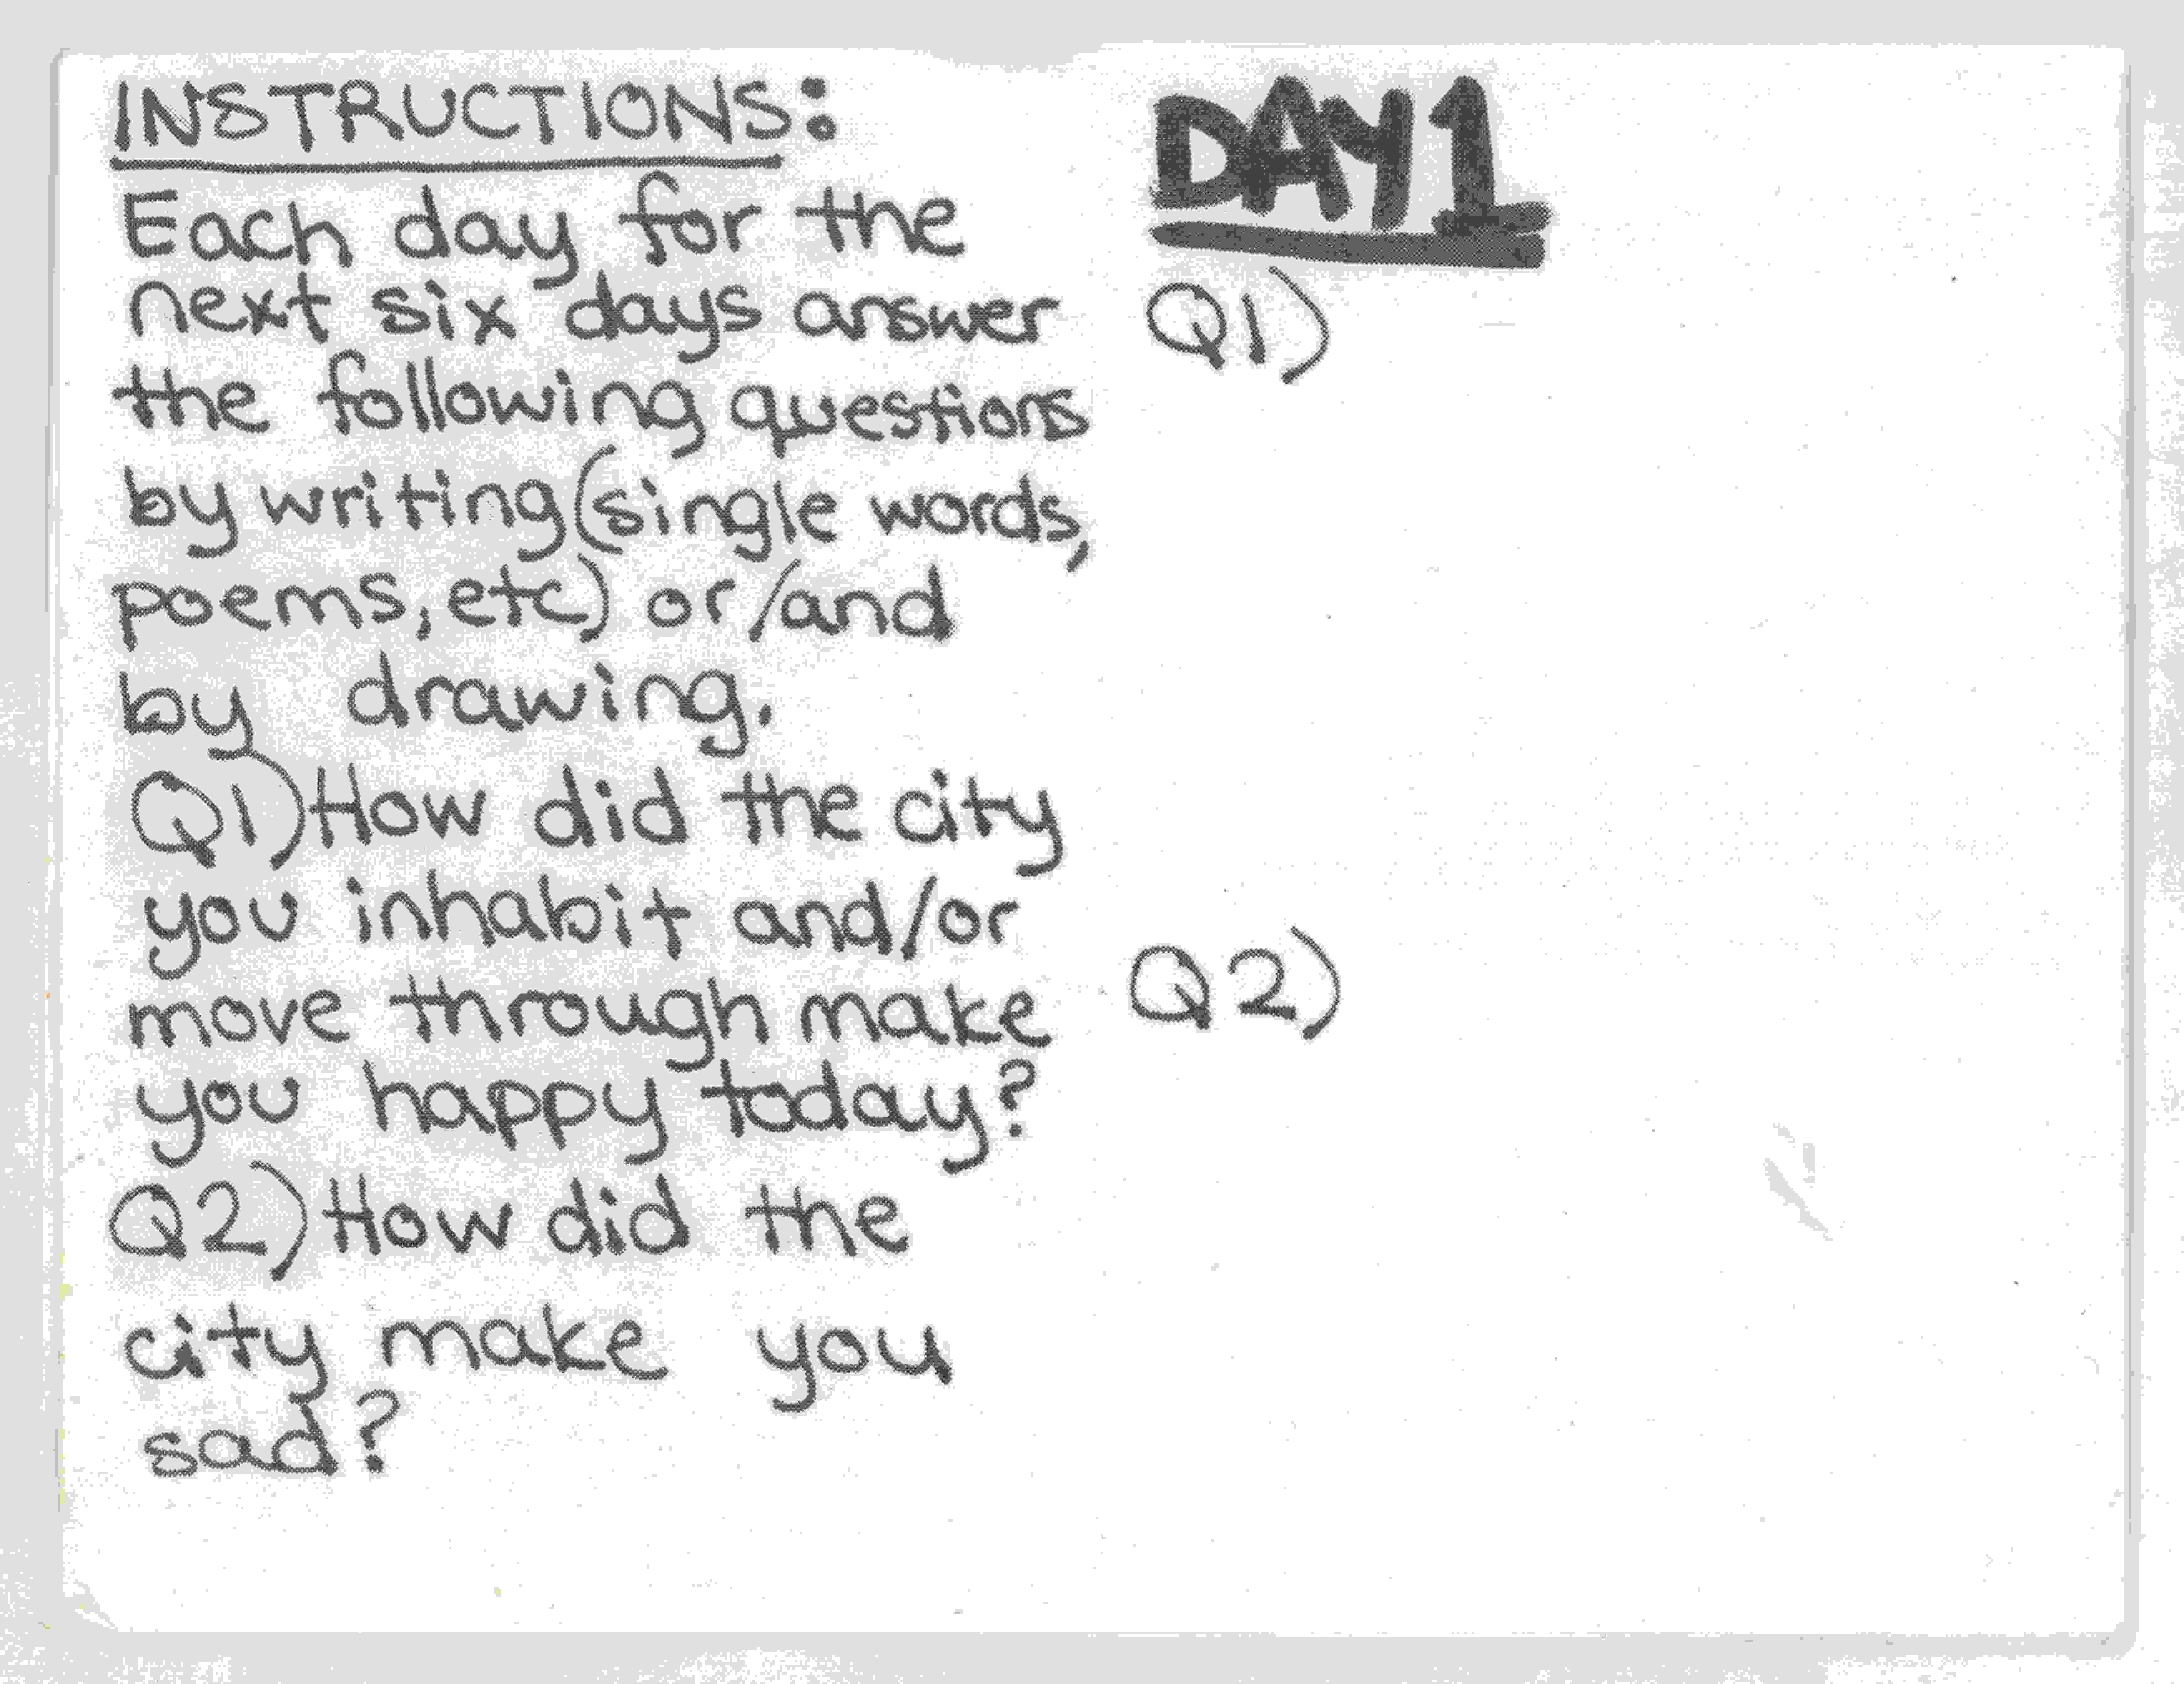 INSTRUCTIONS:
Each day for the
next six days answer
the following questions
by writing (single words,
poems, etc) or/and
by drawing.
Q1) How did the city
you inhabit and/or
move through make
you happy today?
Q2) How did the
city make you
sad?
DAY 1
Q1)
Q2)